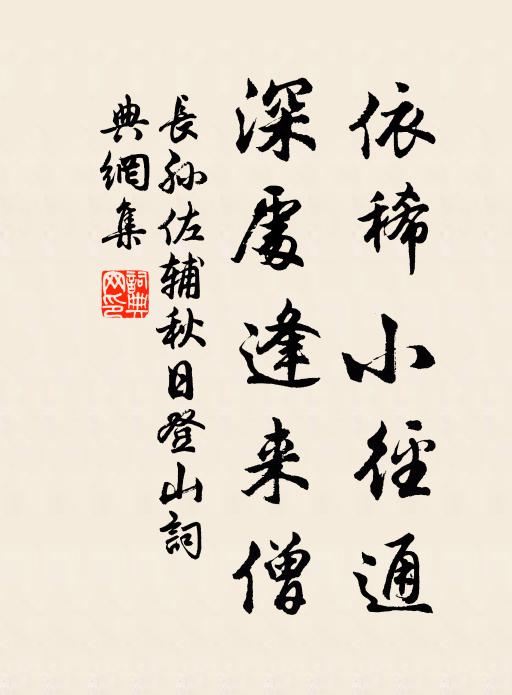 依稀小徑通
深處逢来僧
長孙佐辅秋日登山詞
典網集
詞典網印